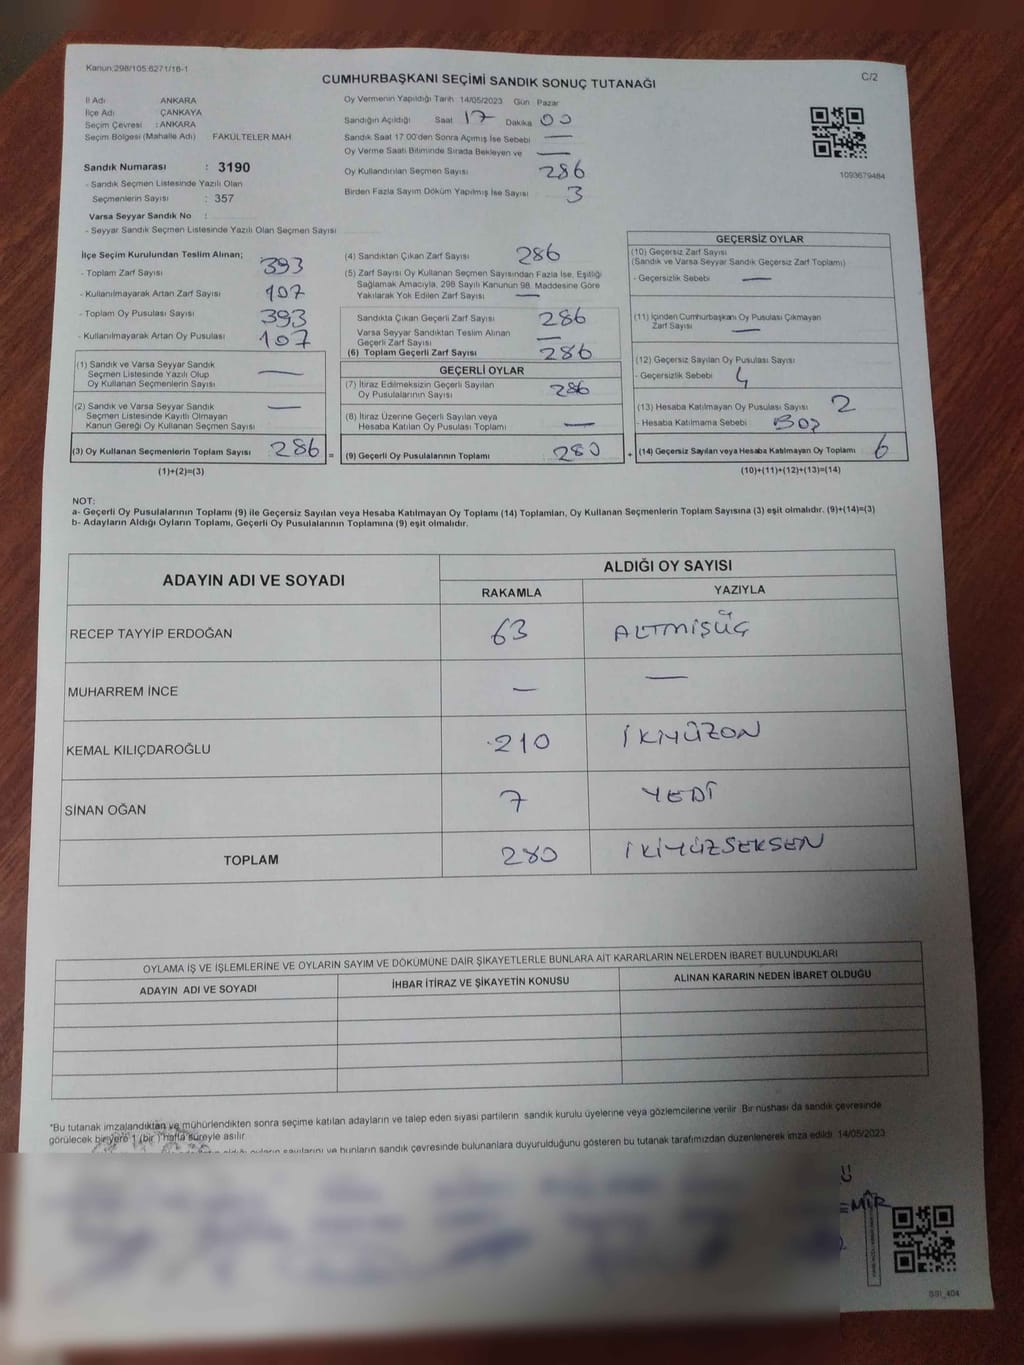 Kanun:298/105:6271/16-1
CUMHURBAŞKANI SEÇİMİ SANDIK SONUÇ TUTANAĞI
C/2
İl Adı ANKARA
İlçe Adı ÇANKAYA
Seçim Çevresi : ANKARA
Seçim Bölgesi (Mahalle Adı) FAKÜLTELER MAH
Oy Vermenin Yapıldığı Tarih 14/05/2023 Gün Pazar
Sandığın Açıldığı Saat 17 Dakika 00
Sandık Saat 17:00'den Sonra Açımış İse Sebebi —
Oy Verme Saati Bitiminde Sırada Bekleyen ve —
Oy Kullandırılan Seçmen Sayısı 286
Birden Fazla Sayım Döküm Yapılmış İse Sayısı 3
1093679484
Sandık Numarası : 3190
- Sandık Seçmen Listesinde Yazılı Olan
Seçmenlerin Sayısı : 357
Varsa Seyyar Sandık No :
- Seyyar Sandık Seçmen Listesinde Yazılı Olan Seçmen Sayısı
İlçe Seçim Kurulundan Teslim Alınan;
- Toplam Zarf Sayısı 393
- Kullanılmayarak Artan Zarf Sayısı 107
- Toplam Oy Pusulası Sayısı 393
- Kullanılmayarak Artan Oy Pusulası 107
(1) Sandık ve Varsa Seyyar Sandık
Seçmen Listesinde Yazılı Olup
Oy Kullanan Seçmenlerin Sayısı —
(2) Sandık ve Varsa Seyyar Sandık
Seçmen Listesinde Kayıtlı Olmayan
Kanun Gereği Oy Kullanan Seçmen Sayısı —
(3) Oy Kullanan Seçmenlerin Toplam Sayısı 286 =
(1)+(2)=(3)
(4) Sandıktan Çıkan Zarf Sayısı 286
(5) Zarf Sayısı Oy Kullanan Seçmen Sayısından Fazla İse, Eşitliği
Sağlamak Amacıyla, 298 Sayılı Kanunun 98. Maddesine Göre
Yakılarak Yok Edilen Zarf Sayısı —
Sandıkta Çıkan Geçerli Zarf Sayısı 286
Varsa Seyyar Sandıktan Teslim Alınan
Geçerli Zarf Sayısı —
(6) Toplam Geçerli Zarf Sayısı 286
GEÇERLİ OYLAR
(7) İtiraz Edilmeksizin Geçerli Sayılan
Oy Pusulalarının Sayısı 286
(8) İtiraz Üzerine Geçerli Sayılan veya
Hesaba Katılan Oy Pusulası Toplamı —
(9) Geçerli Oy Pusulalarının Toplamı 280 +
GEÇERSİZ OYLAR
(10) Geçersiz Zarf Sayısı
(Sandık ve Varsa Seyyar Sandık Geçersiz Zarf Toplamı)
- Geçersizlik Sebebi —
(11) İçinden Cumhurbaşkanı Oy Pusulası Çıkmayan
Zarf Sayısı —
(12) Geçersiz Sayılan Oy Pusulası Sayısı
- Geçersizlik Sebebi 4
(13) Hesaba Katılmayan Oy Pusulası Sayısı 2
- Hesaba Katılmama Sebebi BOŞ
(14) Geçersiz Sayılan veya Hesaba Katılmayan Oy Toplamı 6
(10)+(11)+(12)+(13)=(14)
NOT:
a- Geçerli Oy Pusulalarının Toplamı (9) ile Geçersiz Sayılan veya Hesaba Katılmayan Oy Toplamı (14) Toplamları, Oy Kullanan Seçmenlerin Toplam Sayısına (3) eşit olmalıdır. (9)+(14)=(3)
b- Adayların Aldığı Oyların Toplamı, Geçerli Oy Pusulalarının Toplamına (9) eşit olmalıdır.
ADAYIN ADI VE SOYADI ALDIĞI OY SAYISI
RAKAMLA YAZIYLA
RECEP TAYYİP ERDOĞAN 63 ALTMIŞÜÇ
MUHARREM İNCE — —
KEMAL KILIÇDAROĞLU 210 İKİYÜZON
SİNAN OĞAN 7 YEDİ
TOPLAM 280 İKİYÜZSEKSEN
OYLAMA İŞ VE İŞLEMLERİNE VE OYLARIN SAYIM VE DÖKÜMÜNE DAİR ŞİKAYETLERLE BUNLARA AİT KARARLARIN NELERDEN İBARET BULUNDUKLARI
ADAYIN ADI VE SOYADI İHBAR İTİRAZ VE ŞİKAYETİN KONUSU ALINAN KARARIN NEDEN İBARET OLDUĞU
*Bu tutanak imzalandıktan ve mühürlendikten sonra seçime katılan adayların ve talep eden siyasi partilerin sandık kurulu üyelerine veya gözlemcilerine verilir. Bir nüshası da sandık çevresinde
görülecek bir yere 1 (bir) hafta süreyle asılır.
oyların sayılarını ve bunların sandık çevresinde bulunanlara duyurulduğunu gösteren bu tutanak tarafımızdan düzenlenerek imza edildi. 14/05/2023